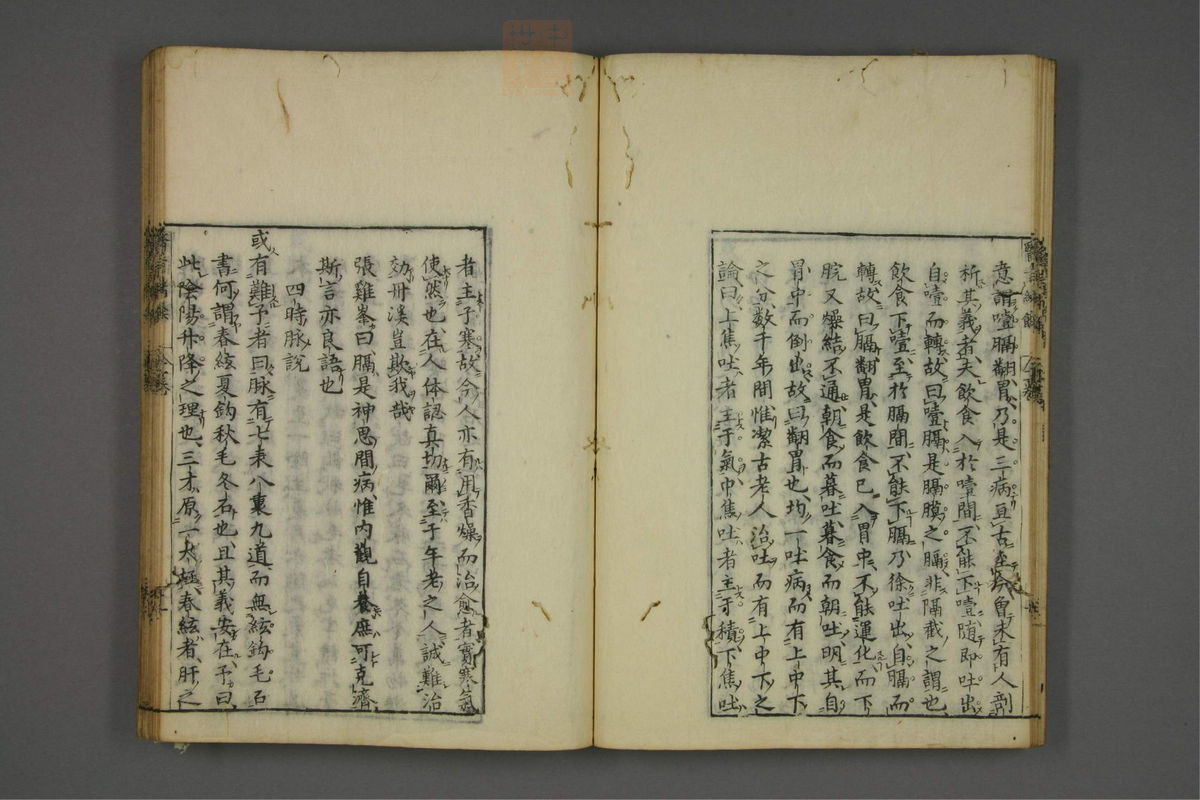 意謂噎膈翻胃乃是三病亘古至今曾未有人剖
析其義者夫飲食入於噎間不能下噎随即吐出
自噎而轉故曰噎膈是膈膜之膈非隔截之謂也
飲食下噎至於膈間不能下膈乃徐吐出自膈而
轉故曰膈翻胃是飲食已入胃中不能運化而下
脘又燥結不通朝食而暮吐暮食而朝吐明其自
胃中而倒出故曰翻胃也均一吐病而有上中下
之分数千年間惟潔古老人治吐而有上中下之
論曰上焦吐者主于氣中焦吐者主于積下焦吐
者主于寒故今人亦有用香燥而治愈者實寒氣
使然也在人体認真切爾至于年老之人誠難治
効丹溪豈欺我哉
張雞峯曰膈是神思間病惟内觀自養庶可克濟
斯言亦良語也
四時脉說
或有難予者曰脉有七表八裏九道而無絃鈎毛石
書何謂春絃夏鈎秋毛冬石也且其義安在予曰
此陰陽升降之理也三才原一太極春絃者肝之